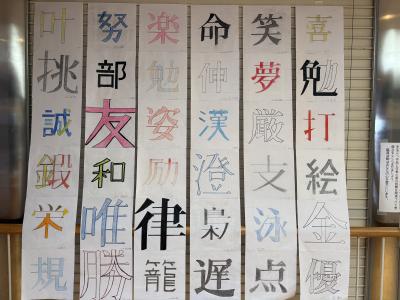 叶 努 楽 命 笑 喜
挑 部 勉 仲 夢 勉
誠 友 姿 漢 厳 打
鍛 和 励 澄 文 絵
栄 唯 律 梟 泳 金
規 勝 籠 遅 点 優